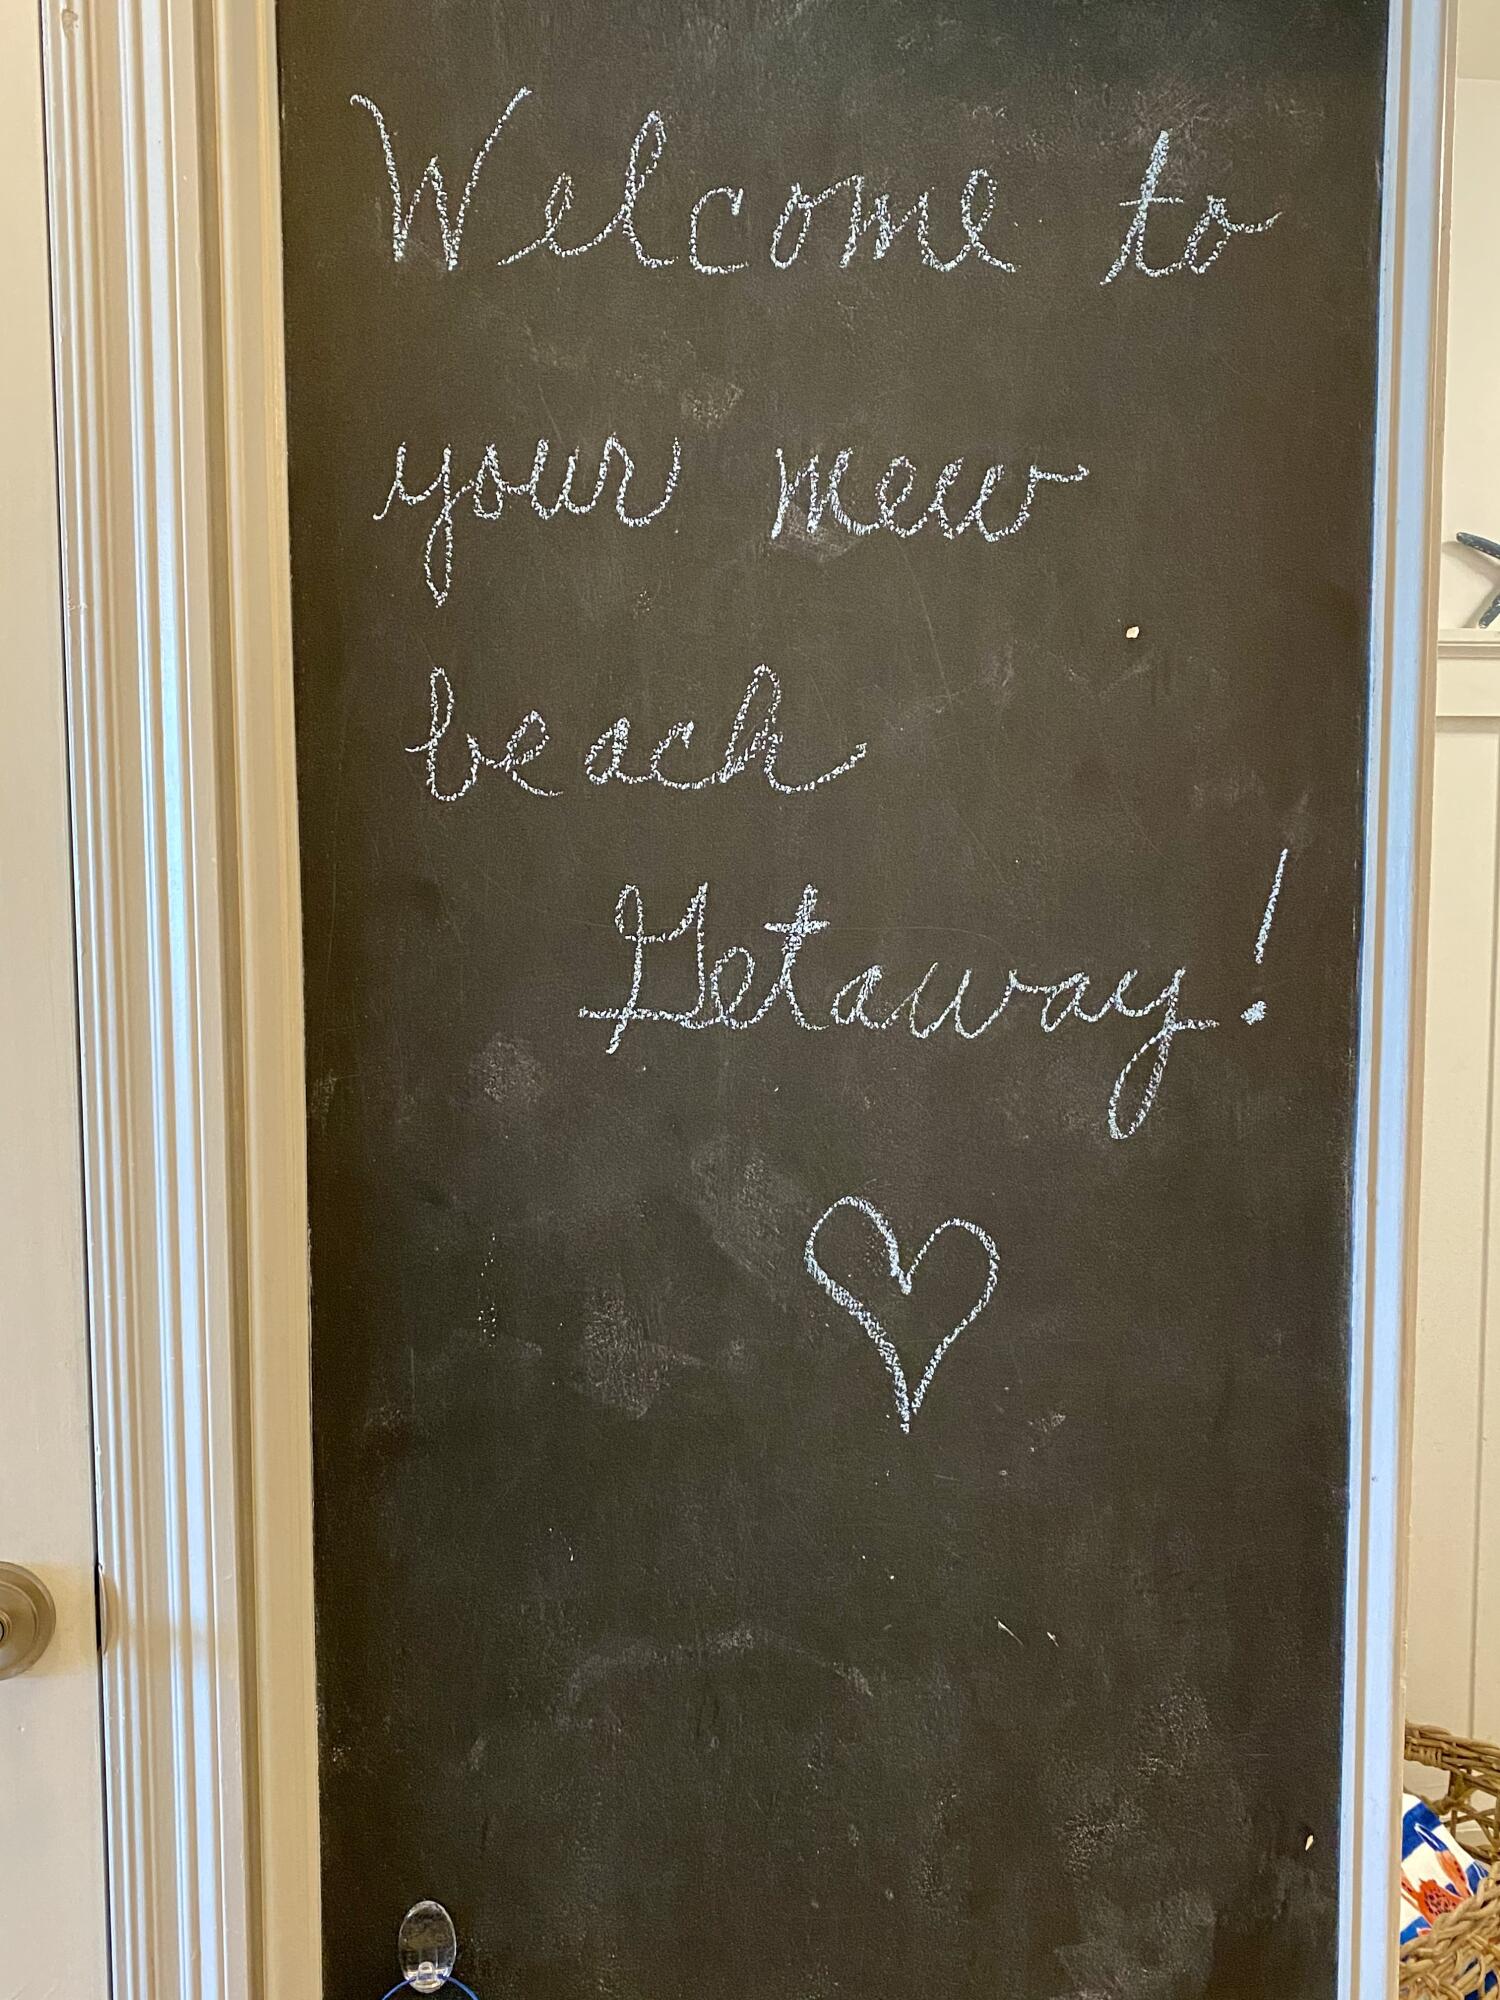 Welcome to
your new
beach
Getaway!